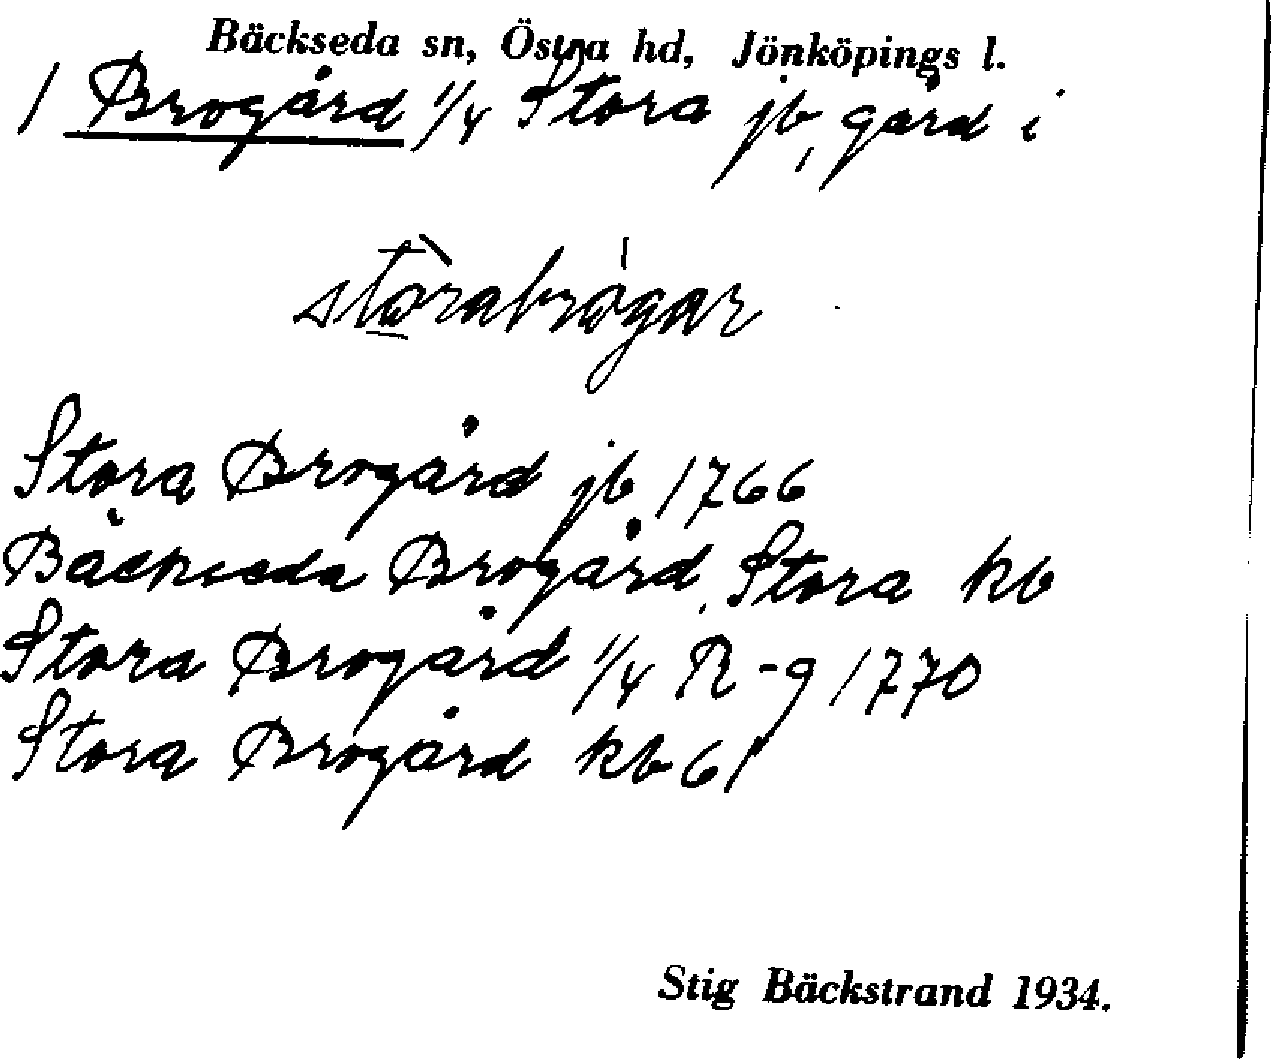 Bäckseda sn, Östra hd, Jönköpings l.
1 Brogård 1/4 Stora jb, gård i
stòrabrógar
Stora Brogård jb 1766
Bäckseda Brogård, Stora kb
Stora Brogård 1/4 R-g 1770
Stora Brogård kb 61
Stig Bäckstrand 1934.